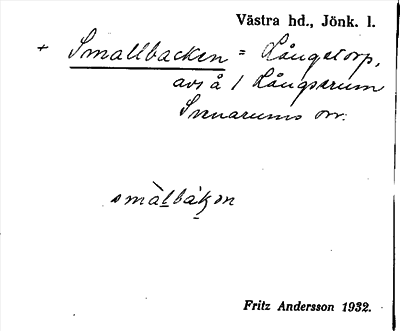 Västra hd., Jönk. l.
+ Smallbacken = Långstorp,
avs å 1 Långserum
Svenarums sn.
smàl̲bák̲ən
Fritz Andersson 1932.